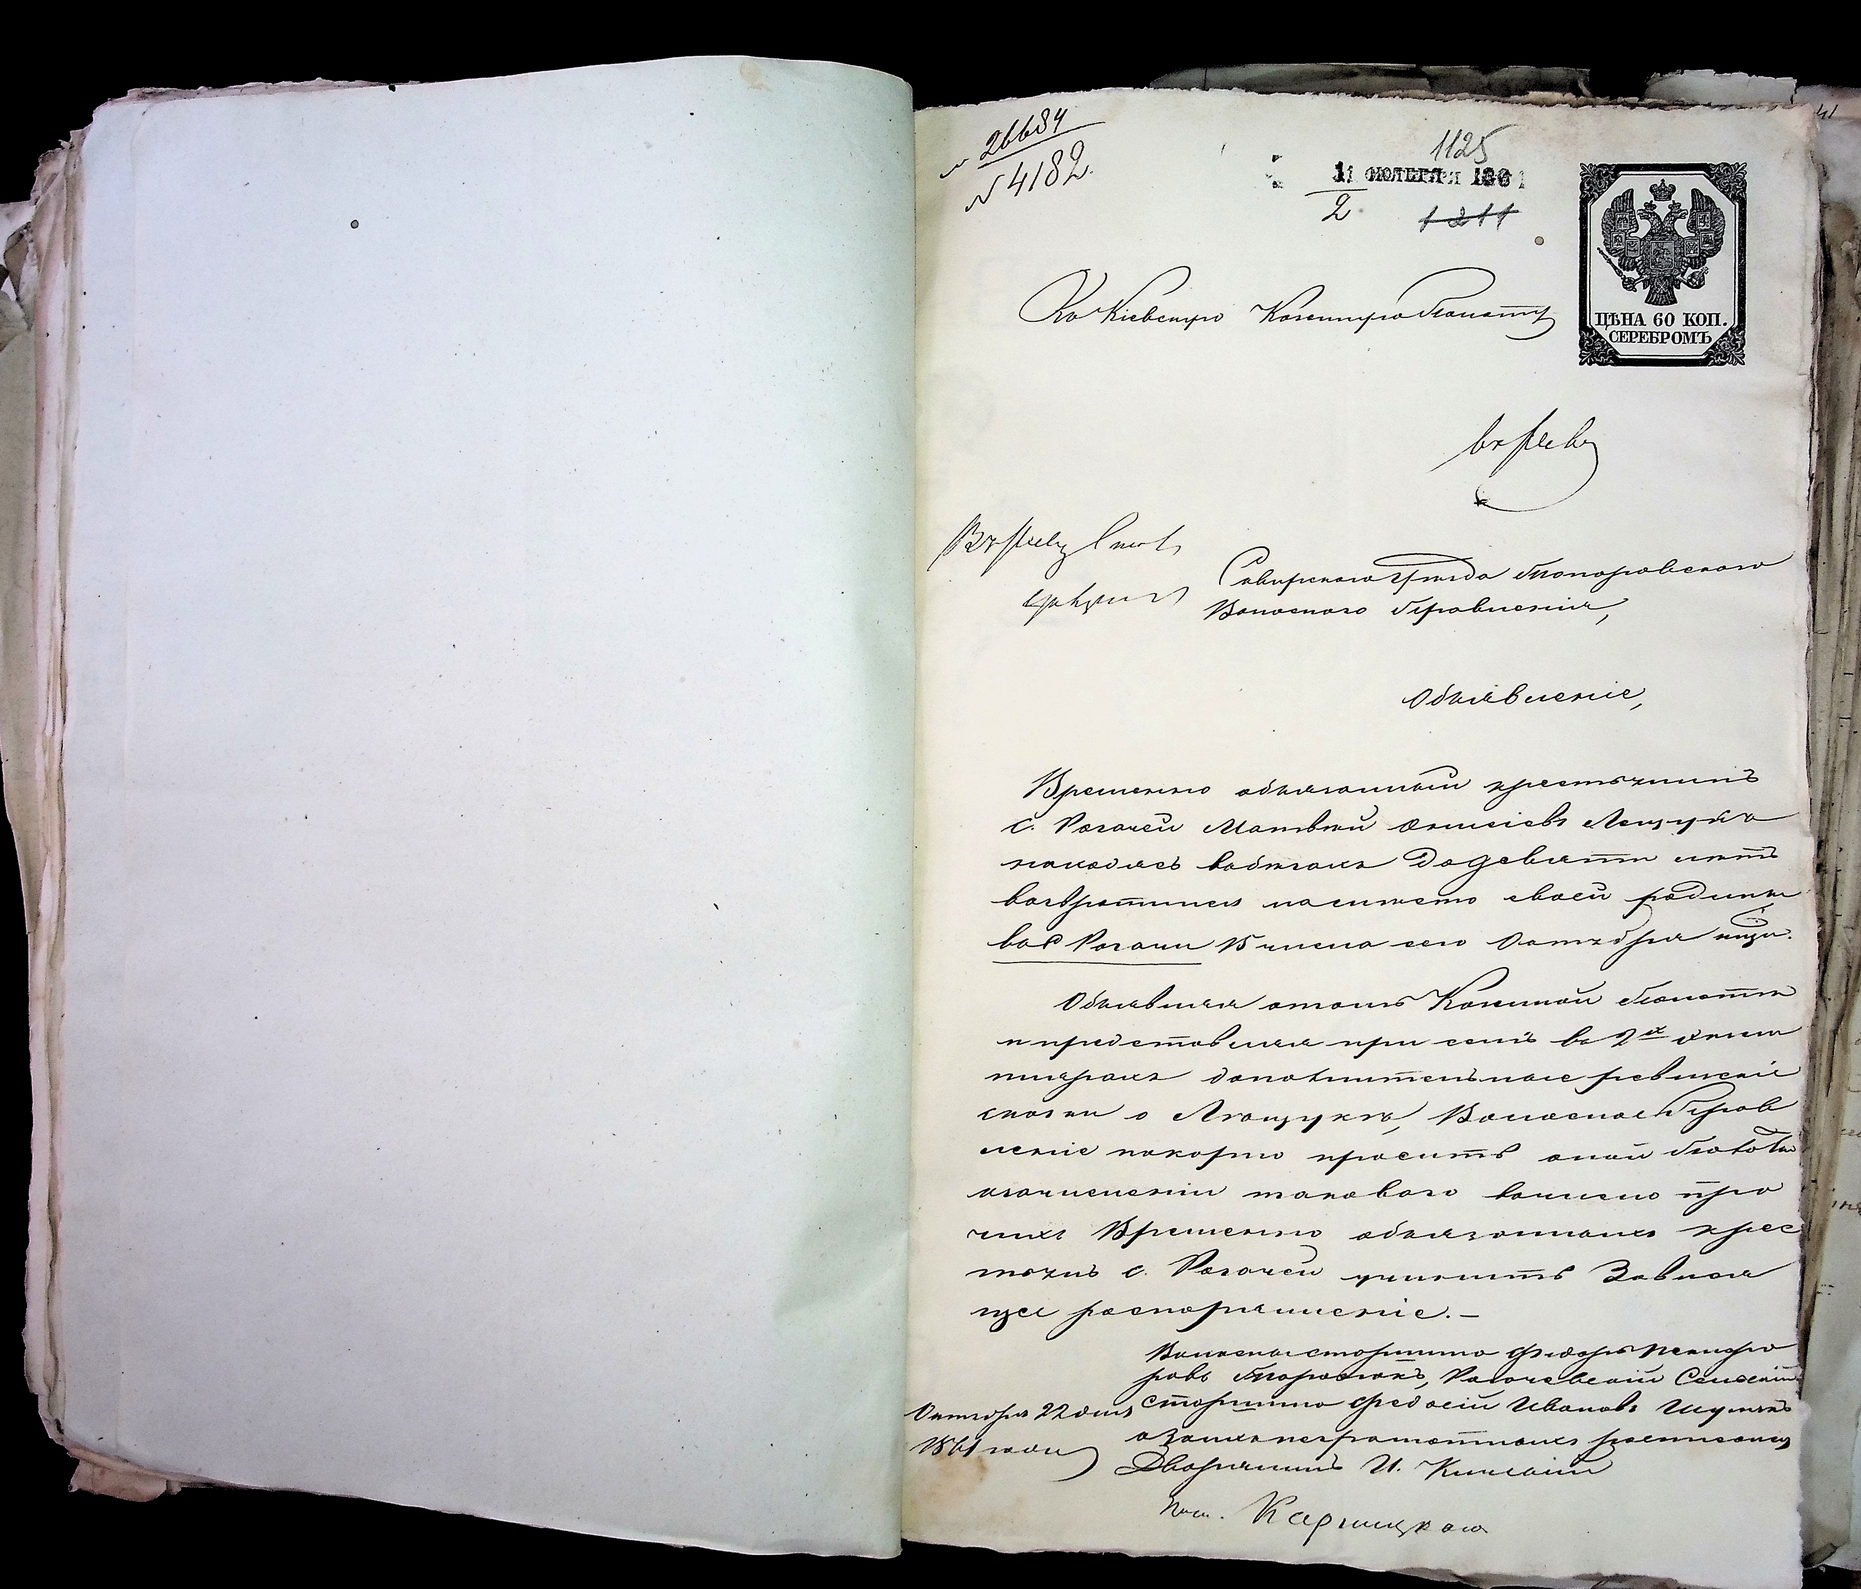 № 26684
№ 4182
1125
11 НОЯБРЯ 1861
2
1211
41
ЦѢНА 60 КОП.
СЕРЕБРОМЪ
Въ Кіевскую Казенную Палату
Сквирскаго уѣзда
Волостнаго Правленія,
Объявленіе,
Временно обязанный крестьянинъ
с. Рогачей Матвѣй Лещукъ
находясь въ бѣгахъ до девяти лѣтъ
возвратился на мѣсто своей родины
въ с. Рогачи 15 числа сего Октября мца.
Объявляя о томъ Казенной Палатѣ
и представляя при семъ въ 2хъ экзем
плярахъ дополнительные ревизскіе
сказки о Лещукѣ, Волосное Прав
леніе покорно проситъ оной Палаты
о зачисленіи таковаго въ число про
чихъ Временно обязанныхъ крес
тьянъ с. Рогачей учинить Завися
щее распоряженіе. –
Волосный старшина Федоръ
Рогачевскій Сельскій
старшина Федосій Ивановъ
а за нихъ неграмотныхъ росписался
Дворянинъ И.
Октября 22 дня
1861 года